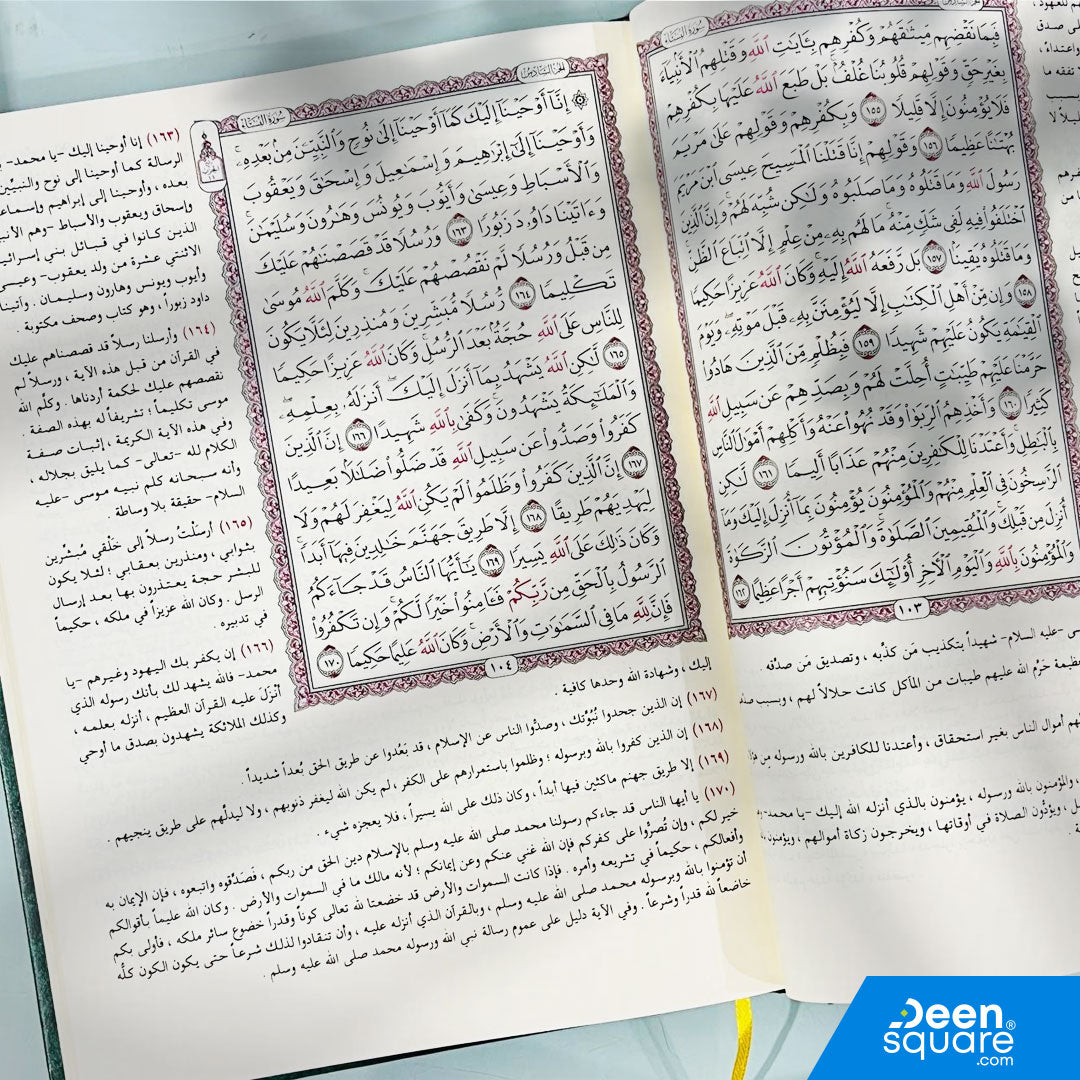 سُورَةُ النِّسَاءِ
فَبِمَا نَقْضِهِم مِّيثَٰقَهُمْ وَكُفْرِهِم بِـَٔايَٰتِ ٱللَّهِ وَقَتْلِهِمُ ٱلْأَنۢبِيَآءَ
بِغَيْرِ حَقٍّ وَقَوْلِهِمْ قُلُوبُنَا غُلْفٌۢ ۚ بَلْ طَبَعَ ٱللَّهُ عَلَيْهَا بِكُفْرِهِمْ
فَلَا يُؤْمِنُونَ إِلَّا قَلِيلًا ١٥٥ وَبِكُفْرِهِمْ وَقَوْلِهِمْ عَلَىٰ مَرْيَمَ
بُهْتَٰنًا عَظِيمًا ١٥٦ وَقَوْلِهِمْ إِنَّا قَتَلْنَا ٱلْمَسِيحَ عِيسَى ٱبْنَ مَرْيَمَ
رَسُولَ ٱللَّهِ وَمَا قَتَلُوهُ وَمَا صَلَبُوهُ وَلَٰكِن شُبِّهَ لَهُمْ ۚ وَإِنَّ ٱلَّذِينَ
ٱخْتَلَفُوا۟ فِيهِ لَفِى شَكٍّ مِّنْهُ ۚ مَا لَهُم بِهِۦ مِنْ عِلْمٍ إِلَّا ٱتِّبَاعَ ٱلظَّنِّ ۚ
وَمَا قَتَلُوهُ يَقِينًۢا ١٥٧ بَل رَّفَعَهُ ٱللَّهُ إِلَيْهِ ۚ وَكَانَ ٱللَّهُ عَزِيزًا حَكِيمًا
١٥٨ وَإِن مِّنْ أَهْلِ ٱلْكِتَٰبِ إِلَّا لَيُؤْمِنَنَّ بِهِۦ قَبْلَ مَوْتِهِۦ ۖ وَيَوْمَ
ٱلْقِيَٰمَةِ يَكُونُ عَلَيْهِمْ شَهِيدًا ١٥٩ فَبِظُلْمٍ مِّنَ ٱلَّذِينَ هَادُوا۟
حَرَّمْنَا عَلَيْهِمْ طَيِّبَٰتٍ أُحِلَّتْ لَهُمْ وَبِصَدِّهِمْ عَن سَبِيلِ ٱللَّهِ
كَثِيرًا ١٦٠ وَأَخْذِهِمُ ٱلرِّبَوٰا۟ وَقَدْ نُهُوا۟ عَنْهُ وَأَكْلِهِمْ أَمْوَٰلَ ٱلنَّاسِ
بِٱلْبَٰطِلِ ۚ وَأَعْتَدْنَا لِلْكَٰفِرِينَ مِنْهُمْ عَذَابًا أَلِيمًا ١٦١ لَّٰكِنِ
ٱلرَّٰسِخُونَ فِى ٱلْعِلْمِ مِنْهُمْ وَٱلْمُؤْمِنُونَ يُؤْمِنُونَ بِمَآ أُنزِلَ إِلَيْكَ وَمَآ
أُنزِلَ مِن قَبْلِكَ ۚ وَٱلْمُقِيمِينَ ٱلصَّلَوٰةَ ۚ وَٱلْمُؤْتُونَ ٱلزَّكَوٰةَ
وَٱلْمُؤْمِنُونَ بِٱللَّهِ وَٱلْيَوْمِ ٱلْءَاخِرِ أُو۟لَٰٓئِكَ سَنُؤْتِيهِمْ أَجْرًا عَظِيمًا ١٦٢
١٠٣
ى -عليه السلام- شهيداً بتكذيب مَن كذَّبه ، وتصديق مَن صدَّقه .
ظيمة حَرَّم الله عليهم طيبات من المآكل كانت حلالاً لهم ، وبسبب
هم أموال الناس بغير استحقاق ، وأعتدنا للكافرين بالله ورسوله من
، والمؤمنون بالله ورسوله ، يؤمنون بالذي أنزله الله إليك -يا محمد-
ل ، ويؤدُّون الصلاة في أوقاتها ، ويخرجون زكاة أموالهم ، ويؤمنون
الجزء السادس
سُورَةُ النِّسَاءِ
۞ إِنَّآ أَوْحَيْنَآ إِلَيْكَ كَمَآ أَوْحَيْنَآ إِلَىٰ نُوحٍ وَٱلنَّبِيِّـۧنَ مِنۢ بَعْدِهِۦ ۚ
وَأَوْحَيْنَآ إِلَىٰٓ إِبْرَٰهِيمَ وَإِسْمَٰعِيلَ وَإِسْحَٰقَ وَيَعْقُوبَ
وَٱلْأَسْبَاطِ وَعِيسَىٰ وَأَيُّوبَ وَيُونُسَ وَهَٰرُونَ وَسُلَيْمَٰنَ ۚ
وَءَاتَيْنَا دَاوُۥدَ زَبُورًا ١٦٣ وَرُسُلًا قَدْ قَصَصْنَٰهُمْ عَلَيْكَ
مِن قَبْلُ وَرُسُلًا لَّمْ نَقْصُصْهُمْ عَلَيْكَ ۚ وَكَلَّمَ ٱللَّهُ مُوسَىٰ
تَكْلِيمًا ١٦٤ رُّسُلًا مُّبَشِّرِينَ وَمُنذِرِينَ لِئَلَّا يَكُونَ
لِلنَّاسِ عَلَى ٱللَّهِ حُجَّةٌۢ بَعْدَ ٱلرُّسُلِ ۚ وَكَانَ ٱللَّهُ عَزِيزًا حَكِيمًا
١٦٥ لَّٰكِنِ ٱللَّهُ يَشْهَدُ بِمَآ أَنزَلَ إِلَيْكَ ۖ أَنزَلَهُۥ بِعِلْمِهِۦ ۖ
وَٱلْمَلَٰٓئِكَةُ يَشْهَدُونَ ۚ وَكَفَىٰ بِٱللَّهِ شَهِيدًا ١٦٦ إِنَّ ٱلَّذِينَ
كَفَرُوا۟ وَصَدُّوا۟ عَن سَبِيلِ ٱللَّهِ قَدْ ضَلُّوا۟ ضَلَٰلًۢا بَعِيدًا
١٦٧ إِنَّ ٱلَّذِينَ كَفَرُوا۟ وَظَلَمُوا۟ لَمْ يَكُنِ ٱللَّهُ لِيَغْفِرَ لَهُمْ وَلَا
لِيَهْدِيَهُمْ طَرِيقًا ١٦٨ إِلَّا طَرِيقَ جَهَنَّمَ خَٰلِدِينَ فِيهَآ أَبَدًا ۚ
وَكَانَ ذَٰلِكَ عَلَى ٱللَّهِ يَسِيرًا ١٦٩ يَٰٓأَيُّهَا ٱلنَّاسُ قَدْ جَآءَكُمُ
ٱلرَّسُولُ بِٱلْحَقِّ مِن رَّبِّكُمْ فَـَٔامِنُوا۟ خَيْرًا لَّكُمْ ۚ وَإِن تَكْفُرُوا۟
فَإِنَّ لِلَّهِ مَا فِى ٱلسَّمَٰوَٰتِ وَٱلْأَرْضِ ۚ وَكَانَ ٱللَّهُ عَلِيمًا حَكِيمًا ١٧٠
١٠٤
(١٦٣) إنا أوحينا إليك -يا محمد-
الرسالة كما أوحينا إلى نوح والنبيين
بعده ، وأوحينا إلى إبراهيم وإسماعـ
وإسحاق ويعقوب والأسباط -وهم الأنبـ
الذين كانوا في قبائل بني إسرائيـ
الاثنتي عشرة من ولد يعقوب- وعيسى
وأيوب ويونس وهارون وسليمان . وآتينا
داود زبوراً ، وهو كتاب وصحف مكتوبة .
(١٦٤) وأرسلنا رسلاً قد قصصناهم عليك
في القرآن من قبل هذه الآية ، ورسلاً لم
نقصصهم عليك لحكمة أردناها . وكلَّم الله
موسى تكليماً ؛ تشريفاً له بهذه الصفة .
وفي هذه الآية الكريمة ، إثبات صفة
الكلام لله -تعالى- كما يليق بجلاله ،
وأنه سبحانه كلم نبيه موسى -عليه
السلام- حقيقة بلا وساطة .
(١٦٥) أرسلْتُ رسلاً إلى خَلْقي مُبشِّرين
بثوابي ، ومنذرين بعقابي ؛ لئلا يكون
للبشر حجة يعتذرون بها بعد إرسال
الرسل . وكان الله عزيزاً في ملكه ، حكيماً
في تدبيره .
(١٦٦) إن يكفر بك اليهود وغيرهم -يا
محمد- فالله يشهد لك بأنك رسوله الذي
أنزلَ عليه القرآن العظيم ، أنزله بعلمه ،
وكذلك الملائكة يشهدون بصدق ما أوحي
إليك ، وشهادة الله وحدها كافية .
(١٦٧) إن الذين جحدوا نُبُوَّتك ، وصدُّوا الناس عن الإسلام ، قد بَعُدوا عن طريق الحق بُعداً شديداً .
(١٦٨) إن الذين كفروا بالله وبرسوله ؛ وظلموا باستمرارهم على الكفر ، لم يكن الله ليغفر ذنوبهم ، ولا ليدلَّهم على طريق ينجيهم .
(١٦٩) إلا طريق جهنم ماكثين فيها أبداً ، وكان ذلك على الله يسيراً ، فلا يعجزه شيء .
(١٧٠) يا أيها الناس قد جاءكم رسولنا محمد صلى الله عليه وسلم بالإسلام دين الحق من ربكم ، فَصَدِّقوه واتبعوه ، فإن الإيمان به
خير لكم ، وإن تُصرُّوا على كفركم فإن الله غني عنكم وعن إيمانكم ؛ لأنه مالك ما في السموات والأرض . وكان الله عليماً بأقوالكم
وأفعالكم ، حكيماً في تشريعه وأمره . فإذا كانت السموات والأرض قد خضعتا لله تعالى كوناً وقدراً خضوع سائر ملكه ، فأولى بكم
أن تؤمنوا بالله وبرسوله محمد صلى الله عليه وسلم ، وبالقرآن الذي أنزله عليه ، وأن تنقادوا لذلك شرعاً حتى يكون الكون كلُّه
خاضعاً لله قدراً وشرعاً . وفي الآية دليل على عموم رسالة نبي الله ورسوله محمد صلى الله عليه وسلم .
Deen
square®
.com